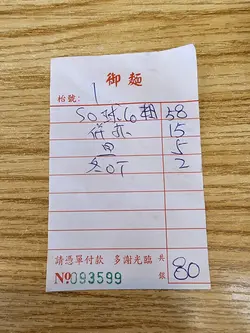 御麵
枱號: 1
SO球 58
15
5
冬OT 2
請憑單付款 多謝光臨 共銀 80
No 093599